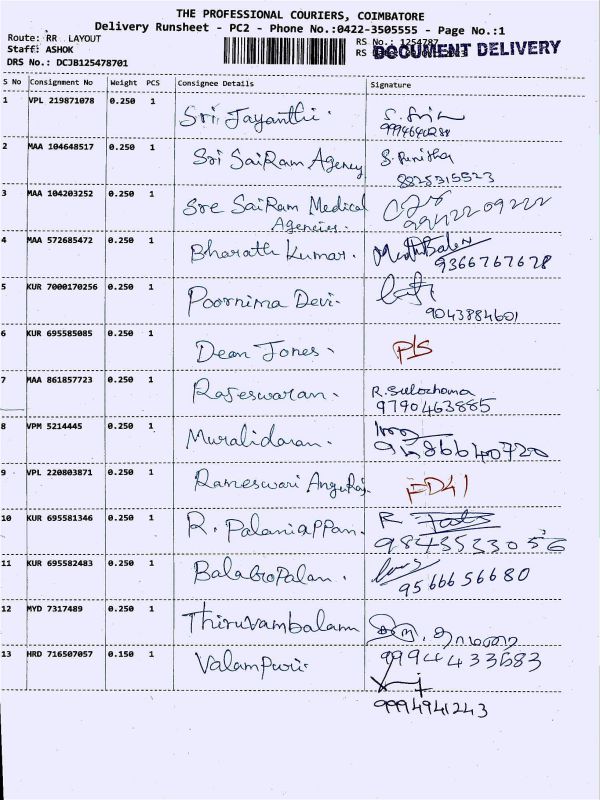 THE PROFESSIONAL COURIERS, COIMBATORE
Delivery Runsheet - PC2 - Phone No.:0422-3505555 - Page No.:1
Route: RR LAYOUT
RS No.: 1254787
Staff: ASHOK
RS
DOCUMENT DELIVERY
DRS No.: DCJB125478701
S No Consignment No Weight PCS Consignee Details Signature
1 VPL 219871078 0.250 1 Sri Jayanthi.
9994640288
2 MAA 104648517 0.250 1 Sri SaiRam Agency S. Punitha
8825315523
3 MAA 104203252 0.250 1 Sre SaiRam Medical
Agencies.
4 MAA 572685472 0.250 1 Bharath Kumar.
9366767678
5 KUR 7000170256 0.250 1 Poornima Devi.
9043884601
6 KUR 695585085 0.250 1 Dean Jones. P/S
7 MAA 861857723 0.250 1 Rajeswaran. R. Sulochana
9790463885
8 VPM 5214445 0.250 1 Muralidaran.
9486640720
9 VPL 220803871 0.250 1 Rameswari AnguRaj
10 KUR 695581346 0.250 1 R. Palaniappan. R
9843533056
11 KUR 695582483 0.250 1 BalaGopalan.
9566656680
12 MYD 7317489 0.250 1 Thiruvambalam
9994433683
13 HRD 716507057 0.150 1 Valampuri.
9994941243